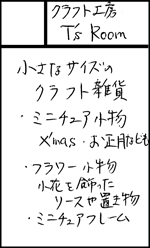 クラフト工房
T's Room
小さなサイズの
クラフト雑貨
・ミニチュア小物
X'mas・お正月なども
・フラワー小物
小花を飾った
リースや置き物
・ミニチュアフレーム